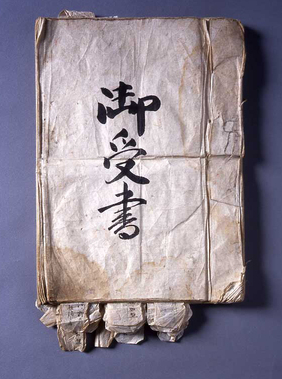 御受書